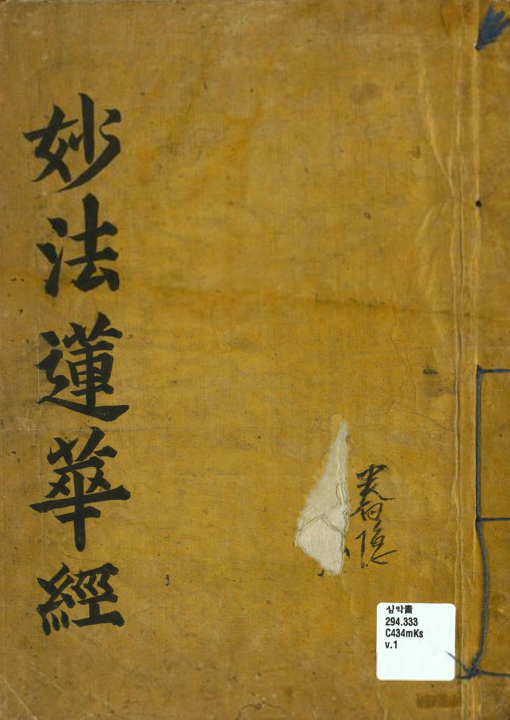 妙法蓮華經
심악齋
294.333
C434mKs
v.1